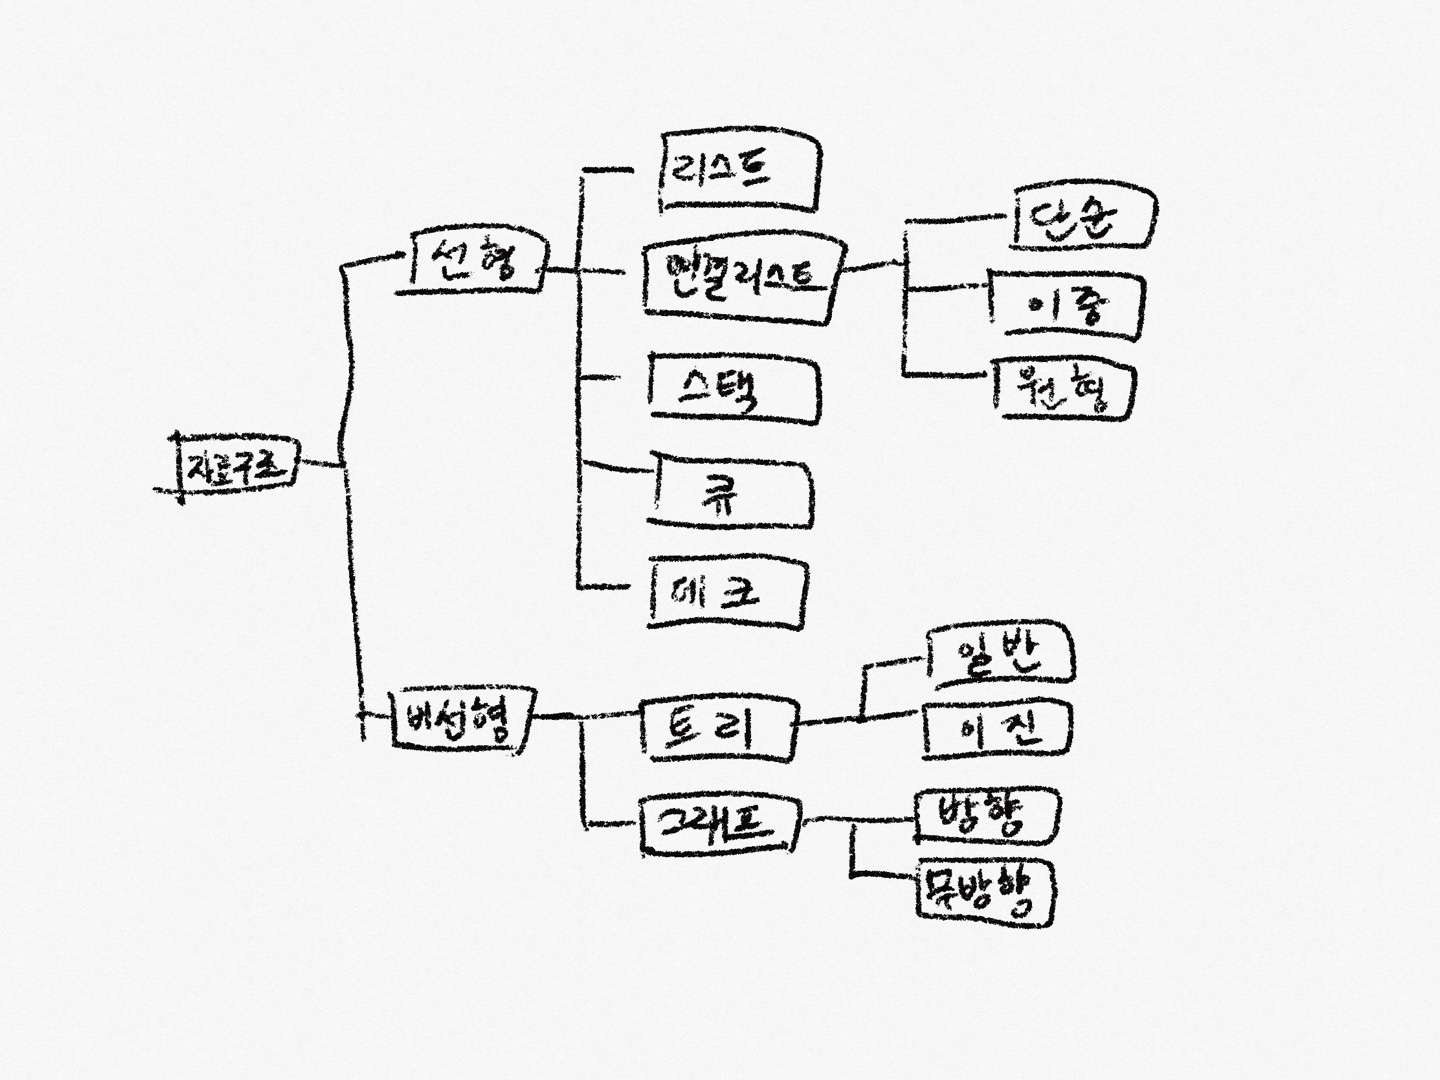 자료구조
선형
리스트
연결리스트
단순
이중
원형
스택
큐
데크
비선형
트리
일반
이진
그래프
방향
무방향